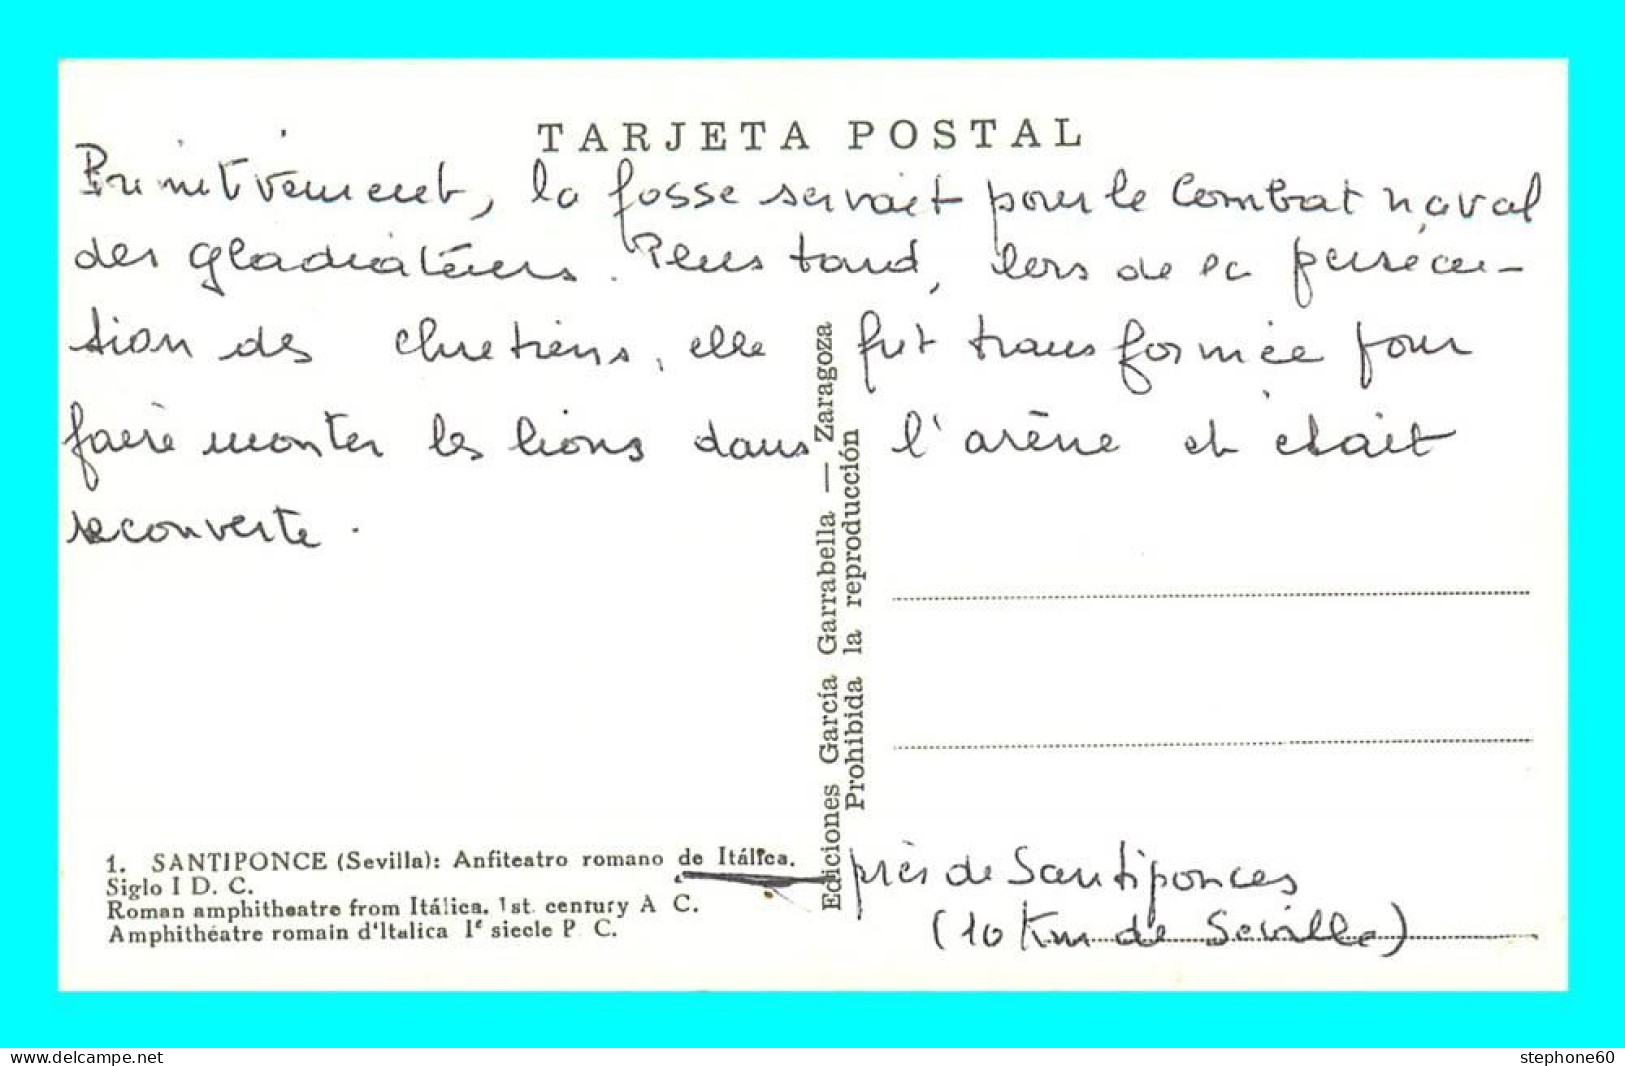 TARJETA POSTAL
Primitivement, la fosse servait pour le combat naval
des gladiateurs. Plus tard, lors de la persécu-
tion des chretiens, elle fut transformée pour
faire monter les lions dans l'arène et était
recouverte.
Ediciones García Garrabella — Zaragoza
Prohibida la reproducción
1. SANTIPONCE (Sevilla): Anfiteatro romano de Itálica.
Siglo I D. C.
Roman amphitheatre from Itálica. 1st. century A C.
Amphithéatre romain d'Italica Iᵉ siecle P C.
près de Santiponces
(10 Km de Seville)
stephone60
www.delcampe.net